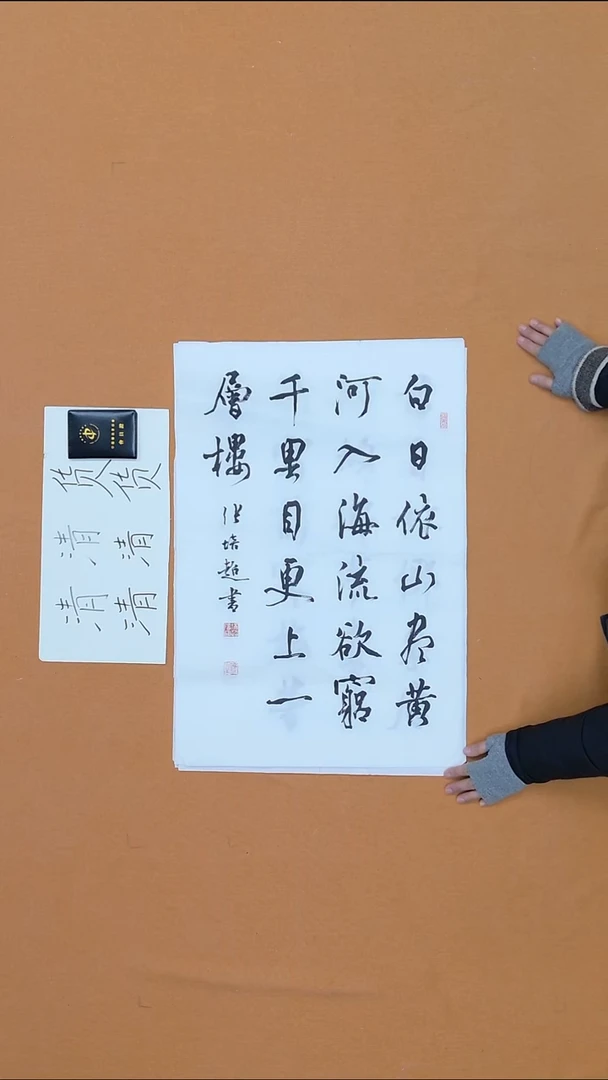 白日依山尽黄
河入海流欲窮
千里目更上一
層樓
张培超书
货货
清清
清清